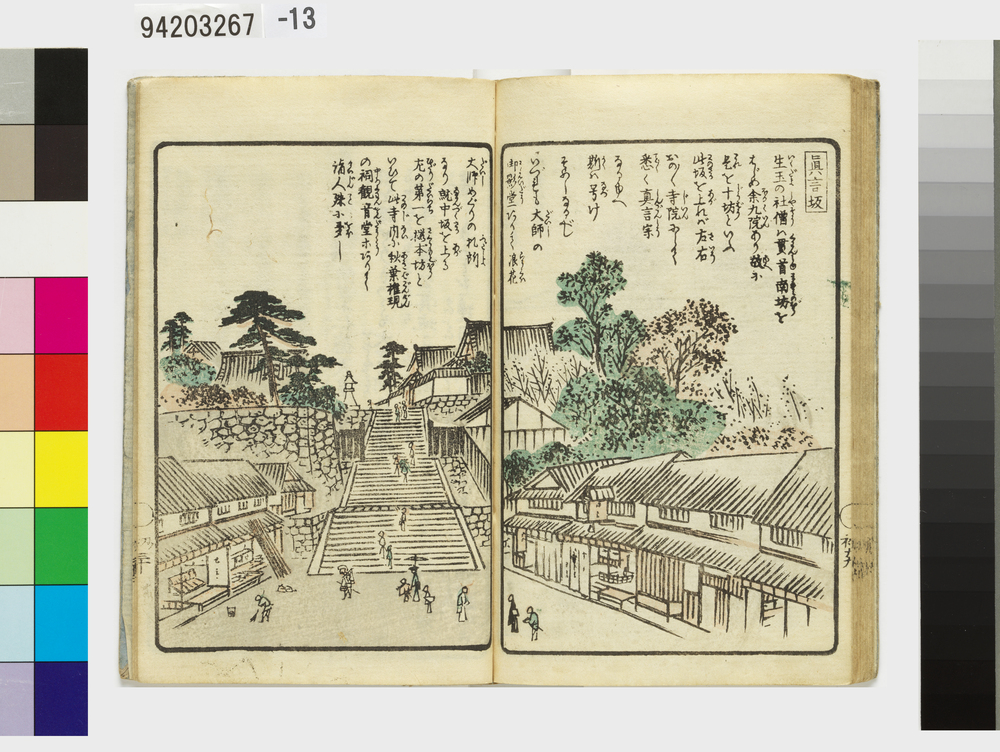 94203267 -13
眞言坂
生玉の社僧は貫首南坊を
はじめ余九院あり故に
是を十坊といふ
此坂を上れバ左右
おの〳〵寺院にして
悉く真言宗
なるゆへ
斯ハ号け
そめしなるべし
いづれも大師の
御影堂ありて浪花
大師めぐりの札所
なり就中坂を上る
左の第一を桜本坊と
いひて此寺内に秋葉権現
の祠観音堂等ありて
諸人殊に